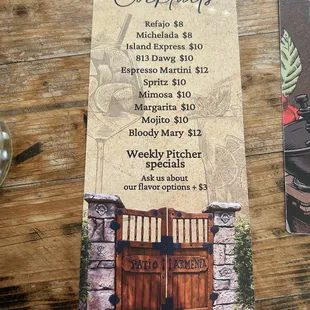 Cocktails
Refajo $8
Michelada $8
Island Express $10
813 Dawg $10
Espresso Martini $12
Spritz $10
Mimosa $10
Margarita $10
Mojito $10
Bloody Mary $12
Weekly Pitcher
specials
Ask us about
our flavor options + $3
PATIO ARMENIA